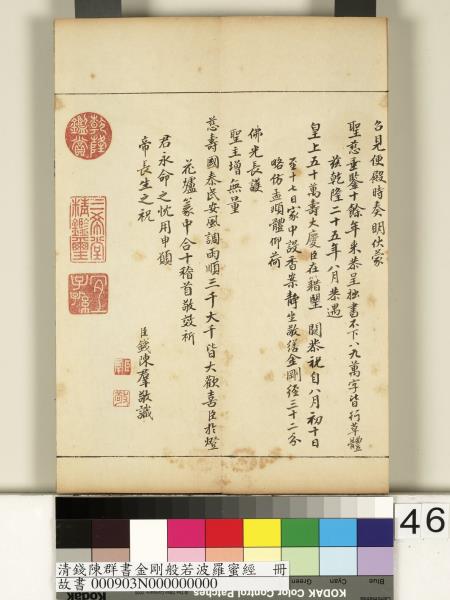 召見便殿時奏明伏蒙
聖慈垂鑒十餘年來恭呈拙書不下八九萬字皆行草體
茲乾隆二十五年八月恭遇
皇上五十萬壽大慶臣在籍望闕恭祝自八月初十日
至十七日家中設香案靜坐敬繕金剛經三十二分
略仿孟頫體仰荷
佛光長護
聖主增無量
慈壽國泰民安風調雨順三千大千皆大歡喜臣於燈
花爐篆中合十稽首敬效祈
君永命之忱用申願
帝長生之祝
臣錢陳羣敬識
乾隆
鑑賞
三希堂
精鑑璽
宜
子孫
臣
46
Blue
Cyan
Green
清錢陳群書金剛般若波羅蜜經 冊
故書 000903N000000000
KODAK Color Control Patches
Kodak